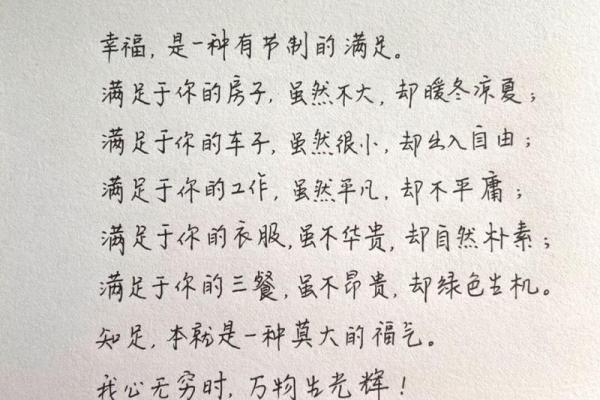 幸福，是一种有节制的满足。
满足于你的房子，虽然不大，却暖冬凉夏；
满足于你的车子，虽然很小，却出入自由；
满足于你的工作，虽然平凡，却不平庸；
满足于你的衣服，虽不华贵，却自然朴素；
满足于你的三餐，虽不昂贵，却绿色生机。
知足，本就是一种莫大的福气。
我心无穷时，万物生光辉！